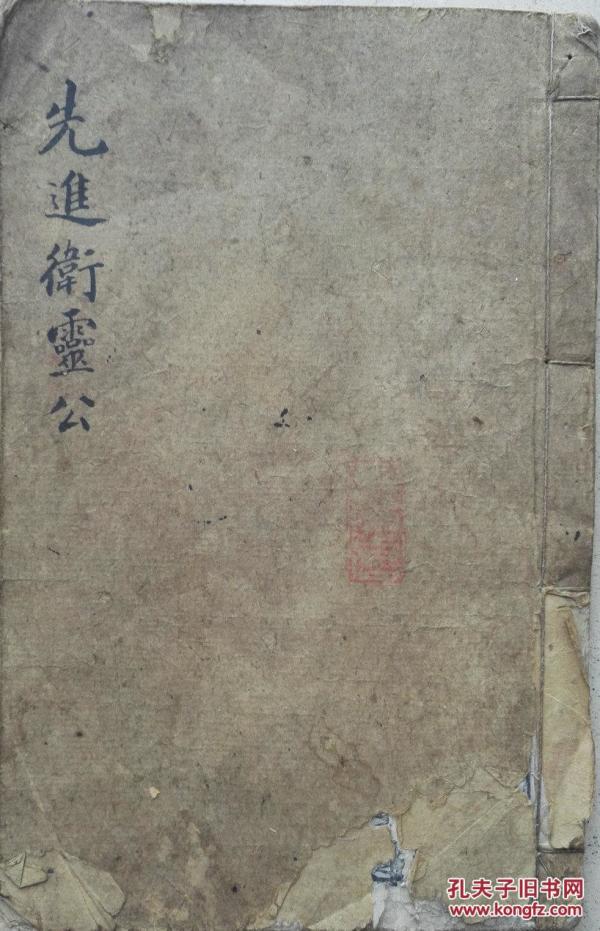 先進衛靈公
孔夫子旧书网
www.kongfz.com